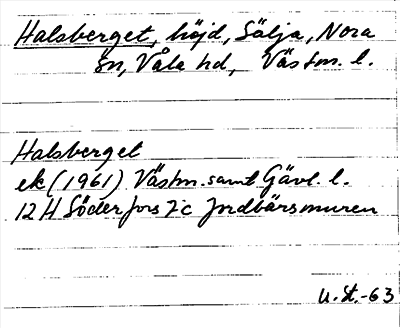 Halsberget, höjd, Sälja, Nora
sn, Våla hd, Västm. l.
Halsberget
ek (1961) Västm. samt Gävl. l.
12 H Söderfors 7c Jordbärsmuren
U. St. -63